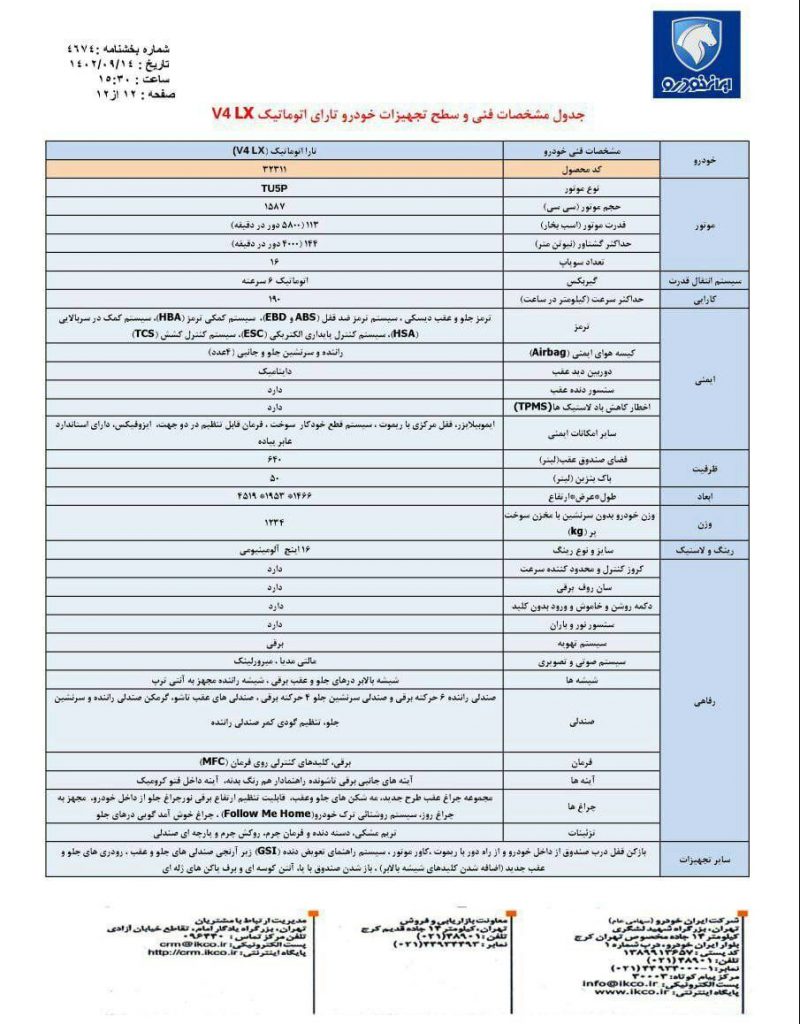 شماره بخشنامه : ۴۶۷۴
تاریخ : ۱۴۰۲/۰۹/۱۴
ساعت : ۱۵:۳۰
صفحه : ۱۲ از ۱۲
ایران خودرو
جدول مشخصات فنی و سطح تجهیزات خودرو تارای اتوماتیک V4 LX
خودرو
مشخصات فنی خودرو
تارا اتوماتیک (V4 LX)
کد محصول
۳۲۳۱۱
موتور
نوع موتور
TU5P
حجم موتور (سی سی)
۱۵۸۷
قدرت موتور (اسب بخار)
۱۱۳ (۵۸۰۰ دور در دقیقه)
حداکثر گشتاور (نیوتن متر)
۱۴۴ (۴۰۰۰ دور در دقیقه)
تعداد سوپاپ
۱۶
سیستم انتقال قدرت
گیربکس
اتوماتیک ۶ سرعته
کارایی
حداکثر سرعت (کیلومتر در ساعت)
۱۹۰
ایمنی
ترمز
ترمز جلو و عقب دیسکی ، سیستم ترمز ضد قفل (ABS و EBD)، سیستم کمکی ترمز (HBA)، سیستم کمک در سربالایی
(HSA)، سیستم کنترل پایداری الکتریکی (ESC)، سیستم کنترل کشش (TCS)
کیسه هوای ایمنی (Airbag)
راننده و سرنشین جلو و جانبی (۴عدد)
دوربین دید عقب
داینامیک
سنسور دنده عقب
دارد
اخطار کاهش باد لاستیک ها(TPMS)
دارد
سایر امکانات ایمنی
ایموبیلایزر، قفل مرکزی با ریموت ، سیستم قطع خودکار سوخت ، فرمان قابل تنظیم در دو جهت، ایزوفیکس، دارای استاندارد
عابر پیاده
ظرفیت
فضای صندوق عقب(لیتر)
۶۴۰
باک بنزین (لیتر)
۵۰
ابعاد
طول*عرض*ارتفاع
۱۴۶۶* ۱۹۵۳* ۴۵۱۹
وزن
وزن خودرو بدون سرنشین با مخزن سوخت
پر (kg)
۱۲۳۴
رینگ و لاستیک
سایز و نوع رینگ
۱۶ اینچ آلومینیومی
رفاهی
کروز کنترل و محدود کننده سرعت
دارد
سان روف برقی
دارد
دکمه روشن و خاموش و ورود بدون کلید
دارد
سنسور نور و باران
دارد
سیستم تهویه
برقی
سیستم صوتی و تصویری
مالتی مدیا ، میرورلینک
شیشه ها
شیشه بالابر درهای جلو و عقب برقی ، شیشه راننده مجهز به آنتی ترپ
صندلی
صندلی راننده ۶ حرکته برقی و صندلی سرنشین جلو ۴ حرکته برقی ، صندلی های عقب تاشو، گرمکن صندلی راننده و سرنشین
جلو، تنظیم گودی کمر صندلی راننده
فرمان
برقی، کلیدهای کنترلی روی فرمان (MFC)
آینه ها
آینه های جانبی برقی تاشونده راهنمادار هم رنگ بدنه، آینه داخل فتو کرومیک
چراغ ها
مجموعه چراغ عقب طرح جدید، مه شکن های جلو وعقب، قابلیت تنظیم ارتفاع برقی نورچراغ جلو از داخل خودرو، مجهز به
چراغ روز، سیستم روشنائی ترک خودرو(Follow Me Home) ، چراغ خوش آمد گویی درهای جلو
تزئینات
تریم مشکی، دسته دنده و فرمان چرم، روکش چرم و پارچه ای صندلی
سایر تجهیزات
بازکن قفل درب صندوق از داخل خودرو و از راه دور با ریموت ،کاور موتور ، سیستم راهنمای تعویض دنده (GSI) زیر آرنجی صندلی های جلو و عقب ، رودری های جلو و
عقب جدید (اضافه شدن کلیدهای شیشه بالابر) ، باز شدن صندوق با پا، آنتن کوسه ای و برف پاکن های ژله ای
شرکت ایران خودرو (سهامی عام)
تهران، بزرگراه شهید لشگری
کیلومتر ۱۴ جاده مخصوص تهران کرج
بلوار ایران خودرو، درب شماره ۱
کد پستی : ۱۳۸۹۹۱۳۶۵۷
تلفن: ۳۸۹۰۱ (۰۲۱)
نمابر: ۱-۳۴۹۳۴۰۰۰ (۰۲۱)
مرکز پیام کوتاه: ۳۰۰۰۳
پست الکترونیکی: info@ikco.ir
پایگاه اینترنتی: www.ikco.ir
معاونت بازاریابی و فروش
تهران، کیلومتر ۱۴ جاده قدیم کرج
تلفن: ۳۸۹۰۱ (۰۲۱)
نمابر : ۳۴۹۲۳۴۹۳ (۰۲۱)
مدیریت ارتباط با مشتریان
تهران، بزرگراه یادگار امام، تقاطع خیابان آزادی
تلفن مرکز تماس : ۰۹۶۴۴۰
پست الکترونیکی: crm@ikco.ir
پایگاه اینترنتی: http://crm.ikco.ir